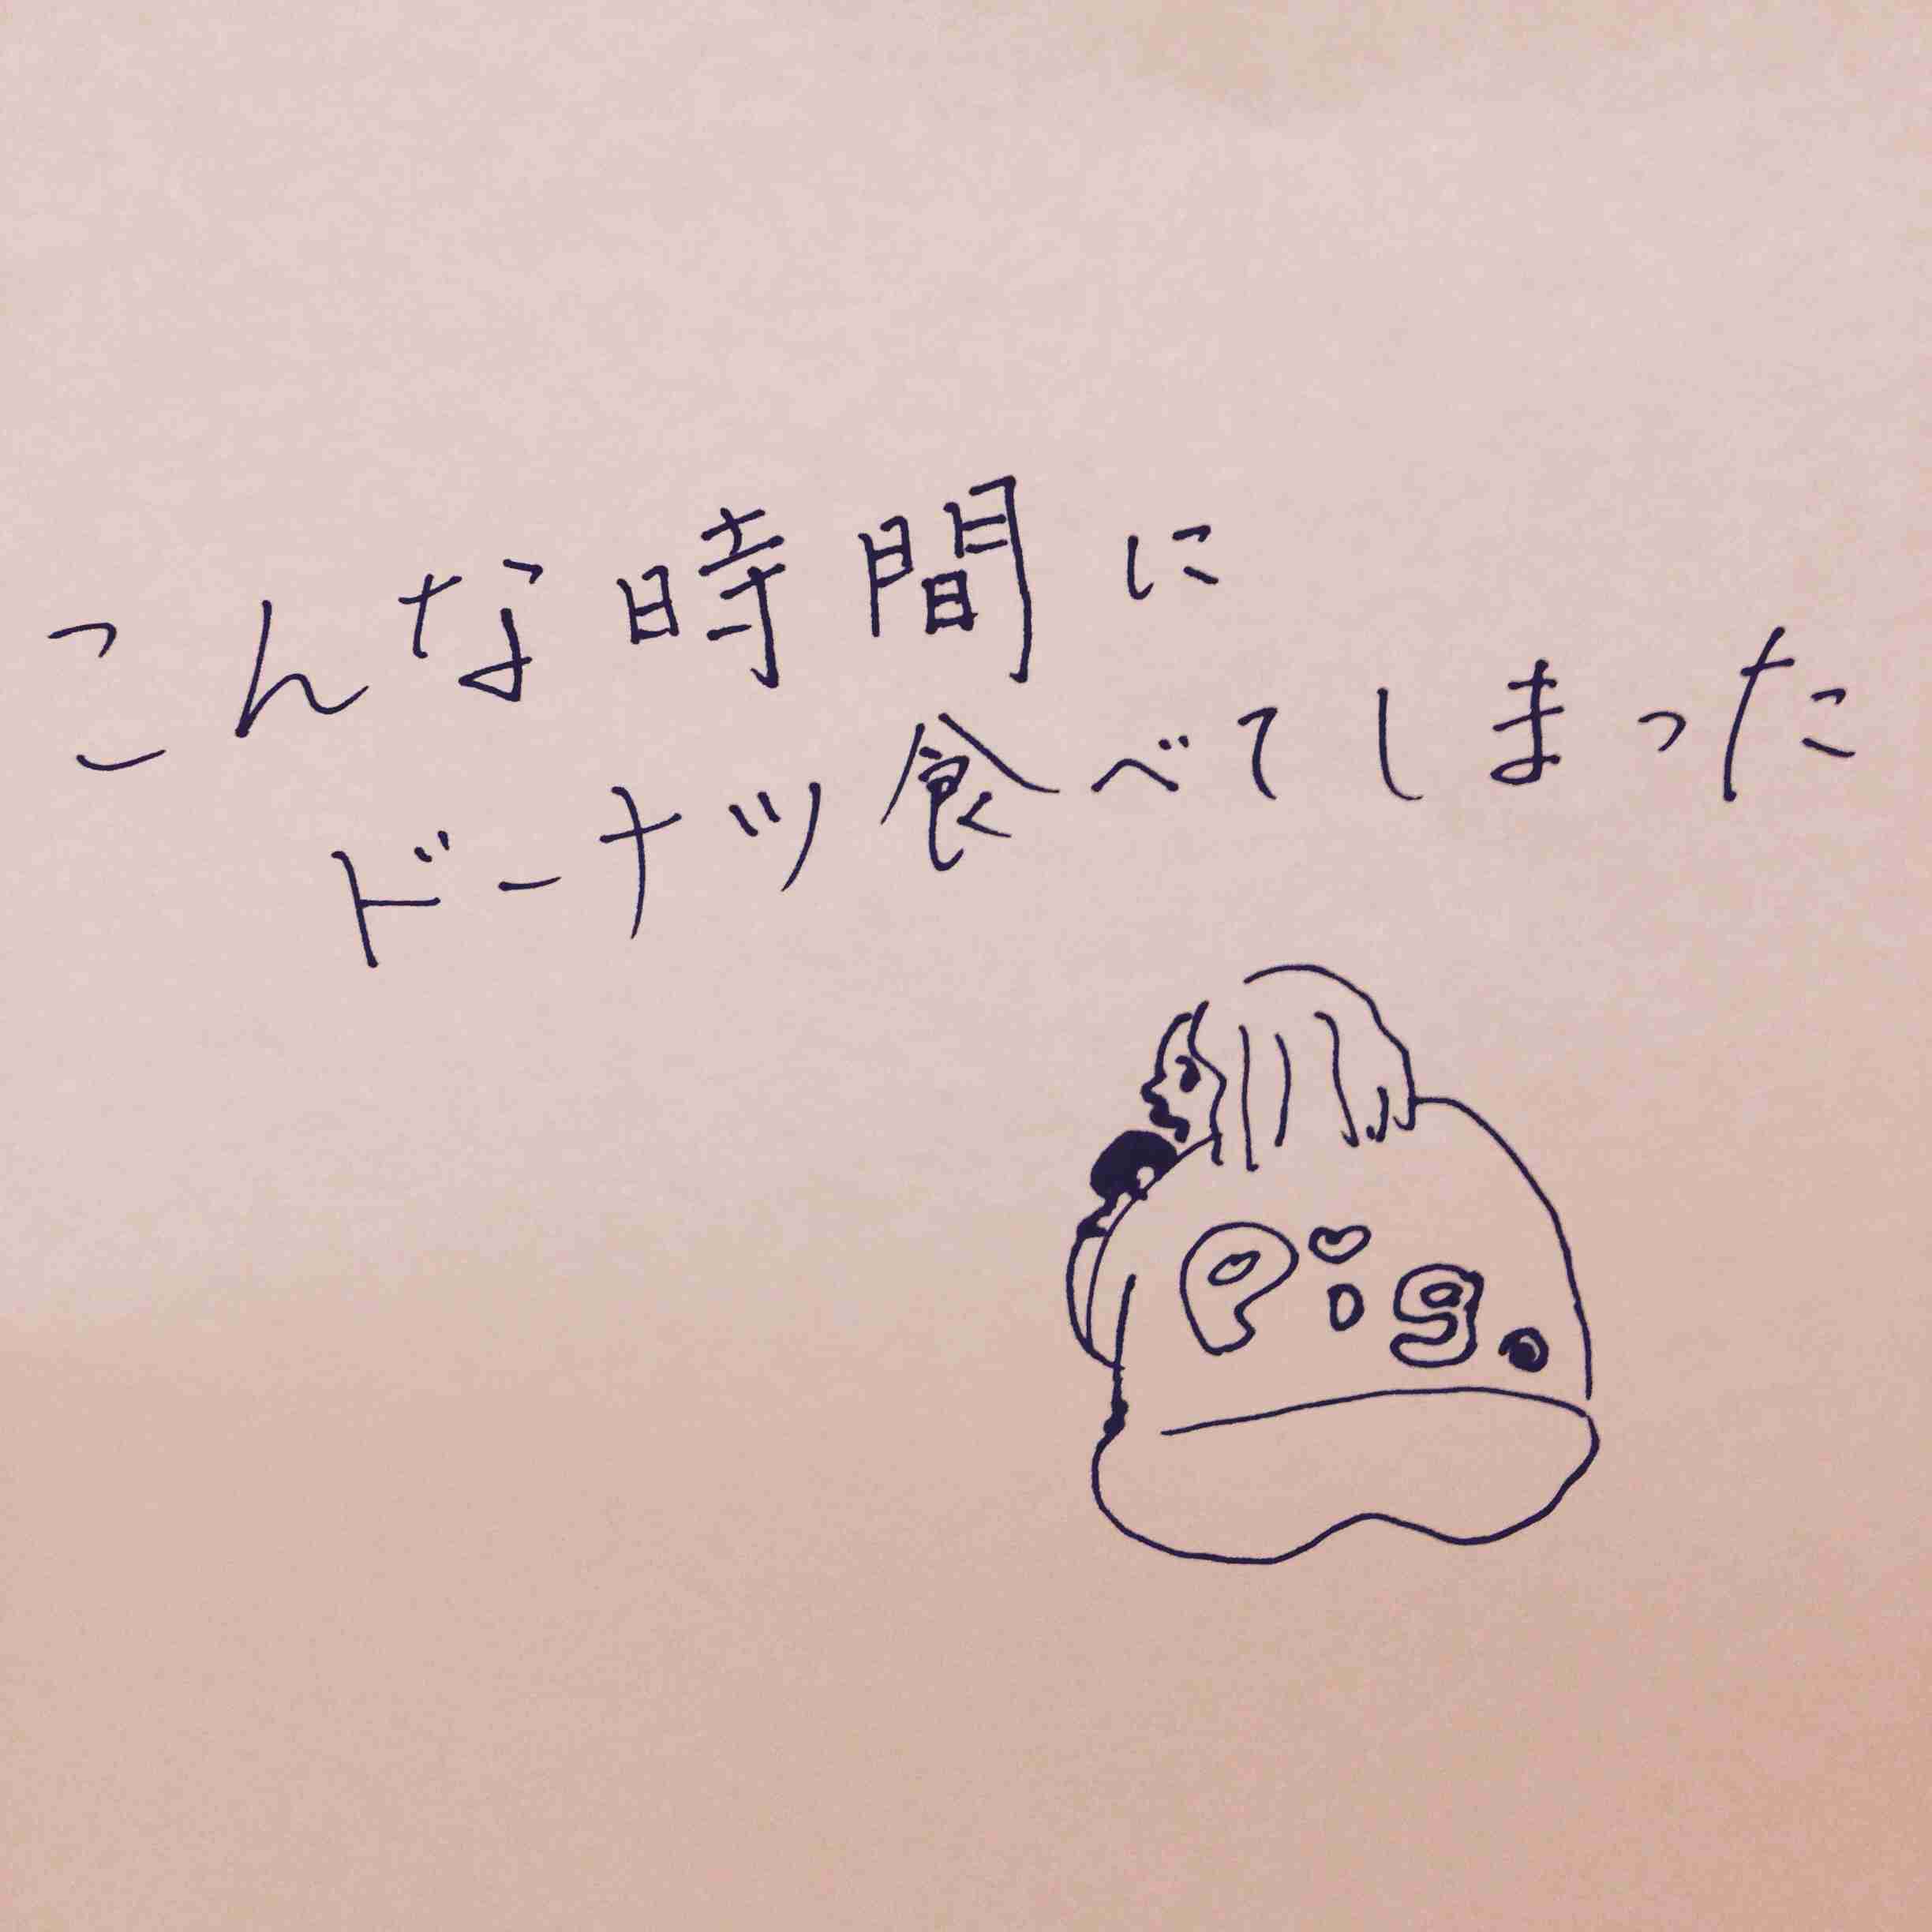 こんな時間に
ドーナツ食べてしまった
Pig.